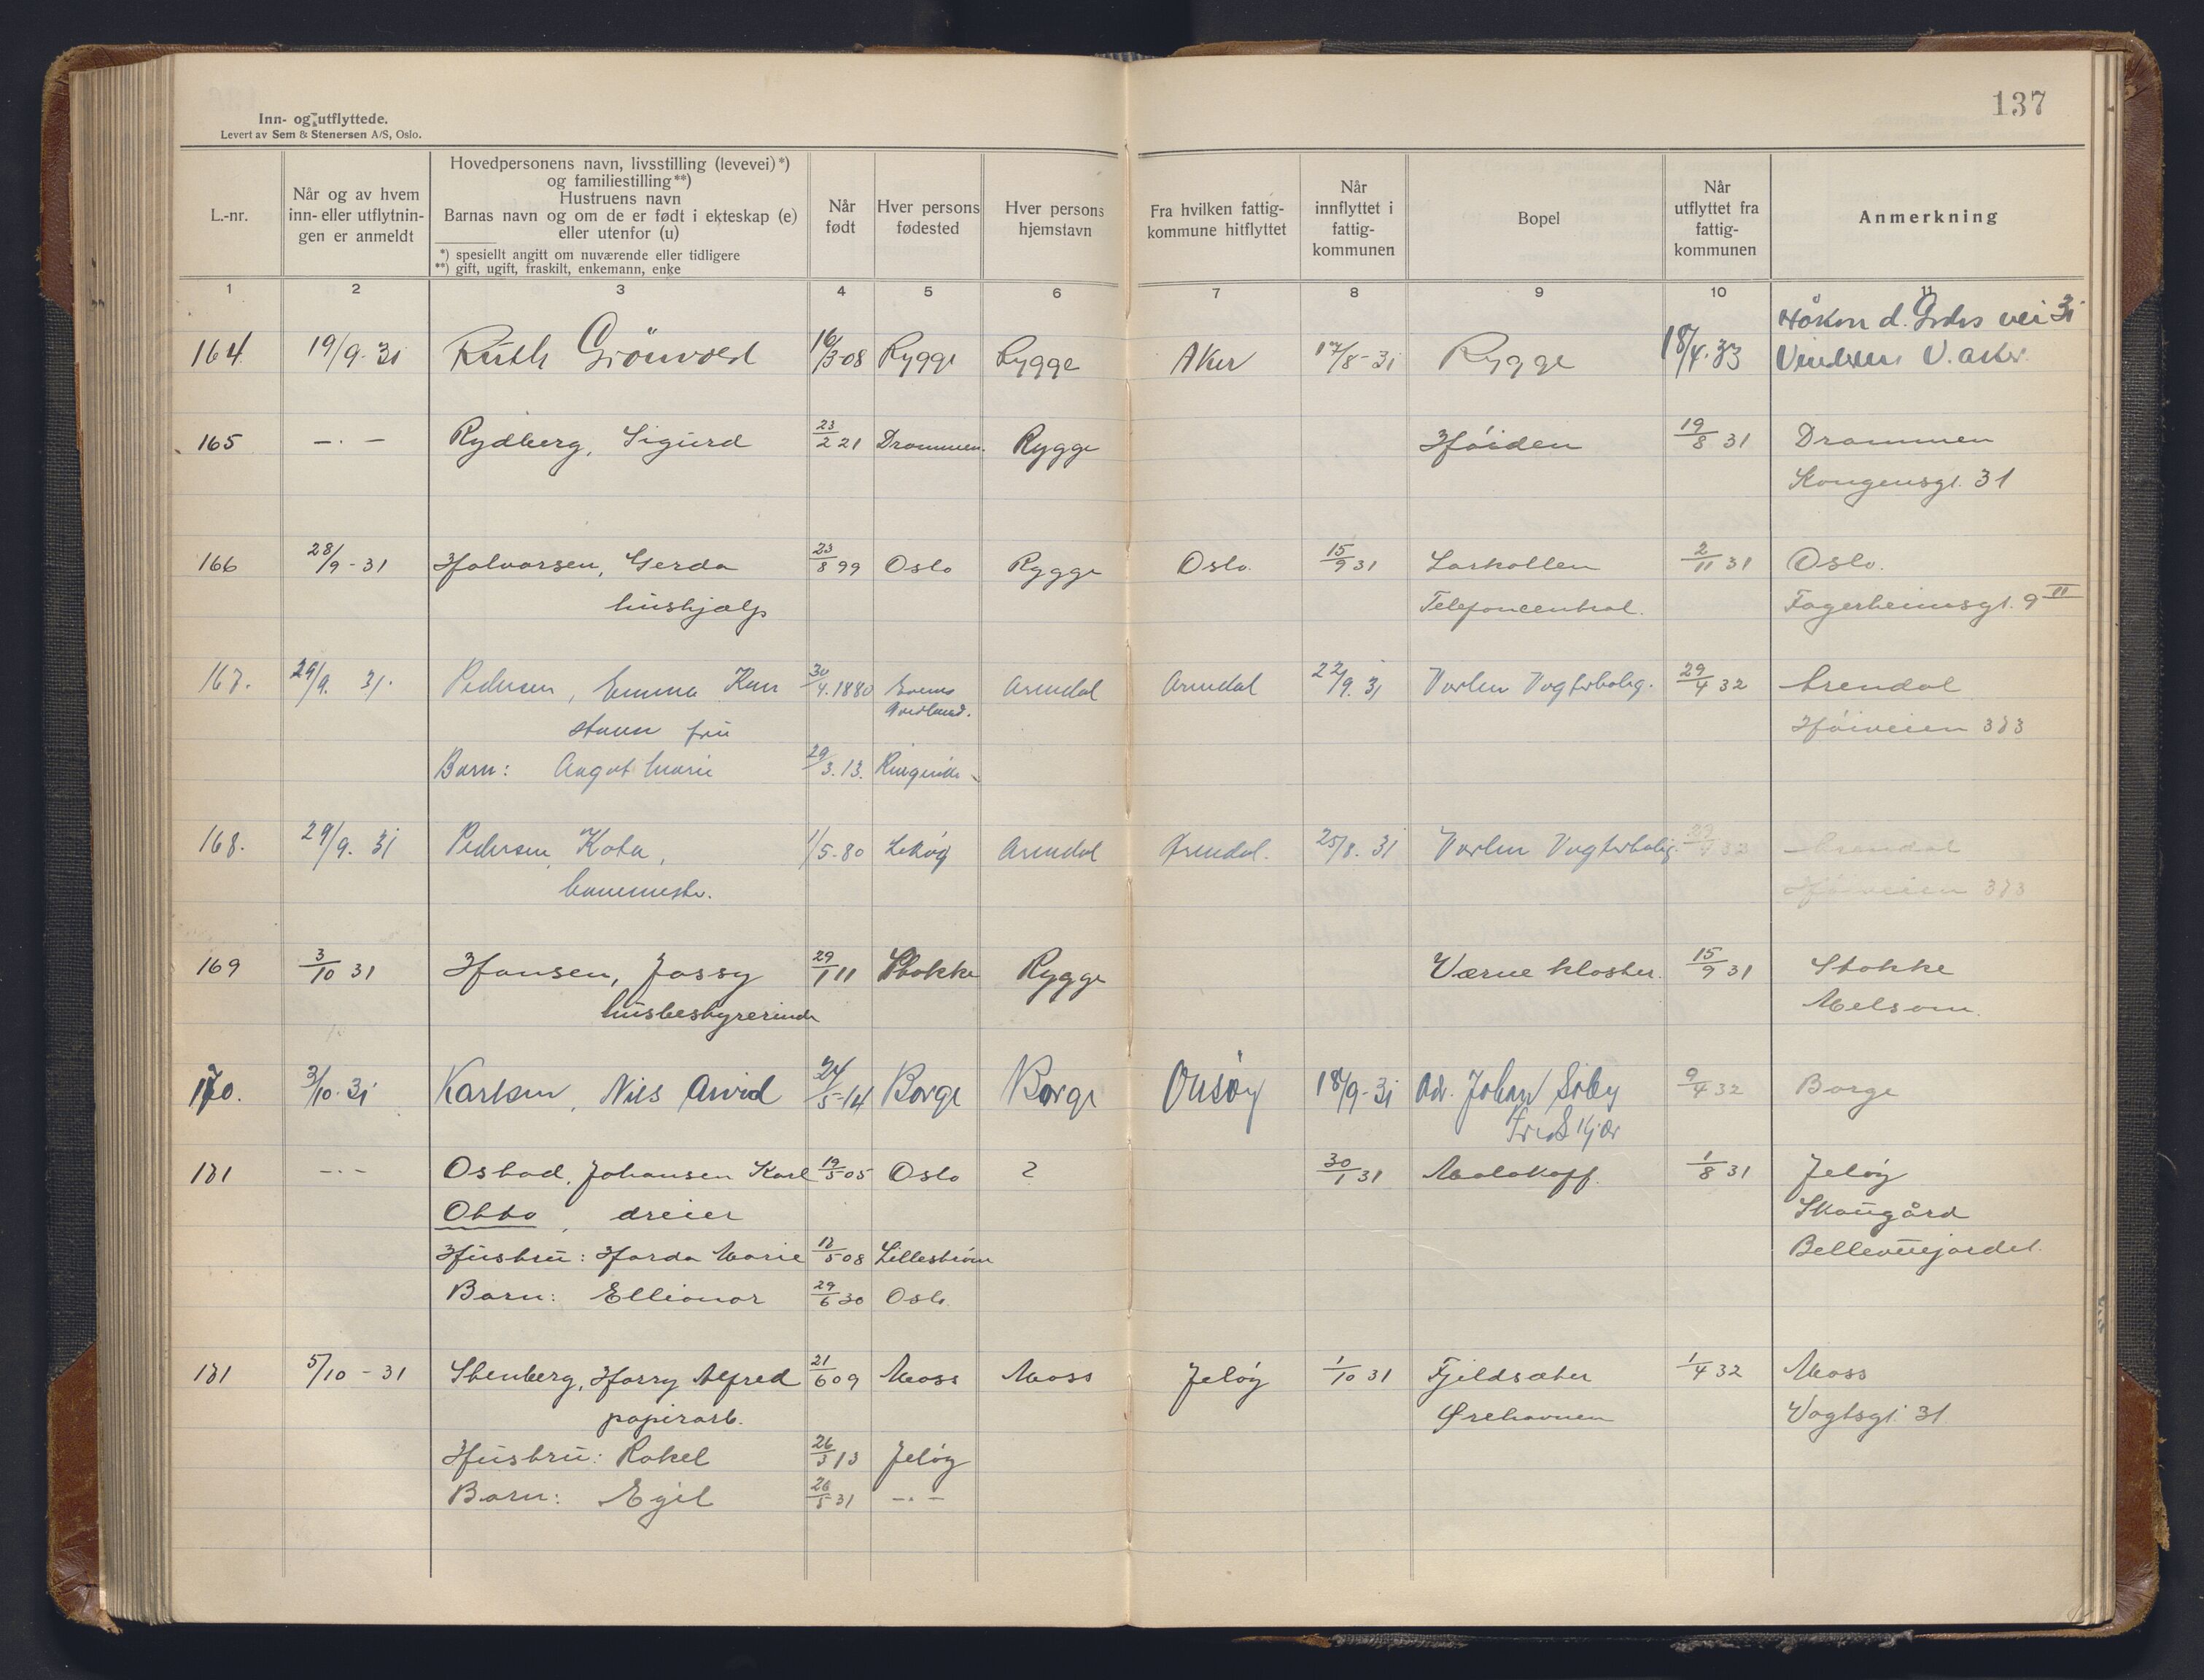 137
Inn- og utflyttede.
Levert av Sem & Stenersen A/S, Oslo.
L.-nr.
Når og av hvem inn- eller utflytningen er anmeldt
Hovedpersonens navn, livsstilling (levevei)*) og familiestilling**)
Hustruens navn
Barnas navn og om de er født i ekteskap (e) eller utenfor (u)
*) spesiellt angitt om nuværende eller tidligere
**) gift, ugift, fraskilt, enkemann, enke
Når født
Hver persons fødested
Hver persons hjemstavn
Fra hvilken fattigkommune hitflyttet
Når innflyttet i fattigkommunen
Bopel
Når utflyttet fra fattigkommunen
Anmerkning
1 2 3 4 5 6 7 8 9 10 11
Håkon d. Godes vei 31
164. 19/9-31 Ruth Grönvold 16/3-08 Rygge Rygge Aker 17/8-31 Rygge 18/4.33 Vinderen V. Aker
165 —·— Rydberg, Sigurd 23/2 21 Drammen. Rygge Høiden 19/8 31 Drammen
Kongensgt. 31
166 28/9-31 Halvorsen, Gerda 23/8 99 Oslo Rygge Oslo. 15/9 31 Larkollen 2/11 31 Oslo.
hushjælp Telefoncentral. Fagerheimsgt. 9 II
167. 29/9. 31. Pedersen, Emma 30/4.1880 Arendal Arendal 22/9.31 Varlen Vogterbolig. 29/4 32 Arendal
fru Høiveien 373
Barn: Aagot Marie 29/3.13. Ringerike
168. 29/9. 31 Pedersen, 1/5-80 Arendal Arendal. 25/8. 31 Varlen Vogterbolig. 29/4 32 Arendal
banemester. Høiveien 373
169 3/10 31 Hansen, Jossy 29/1 11 Stokke Rygge Værne kloster. 15/9 31 Stokke
husbestyrerinde Melsom.
170. 3/10-31 Karlsen, Nils Arvid 24/5-14 Borge Borge Onsøy 18/9-31 Adr. Johan Siby 9/4 32 Borge
181 —·— Osbad, Johansen Karl 19/5 05 Oslo ? 30/1 31 Malakoff. 1/8 31 Jeløy
Otto, dreier Skougård
Hustru: Harda Marie 12/5 08 Lillestrøm Bellevuejordet.
Barn: Ellionor 29/6 30 Oslo
181 5/10-31 Stenberg, Harry Alfred 21/6 09 Moss Moss Jeløy 1/10 31 Fjeldsæter 1/4 32 Moss
papirarb. Ørehavnen Vogtsgt. 31
Hustru: Rakel 26/3 13 Jeløy
Barn: Egil 26/5 31 —·—